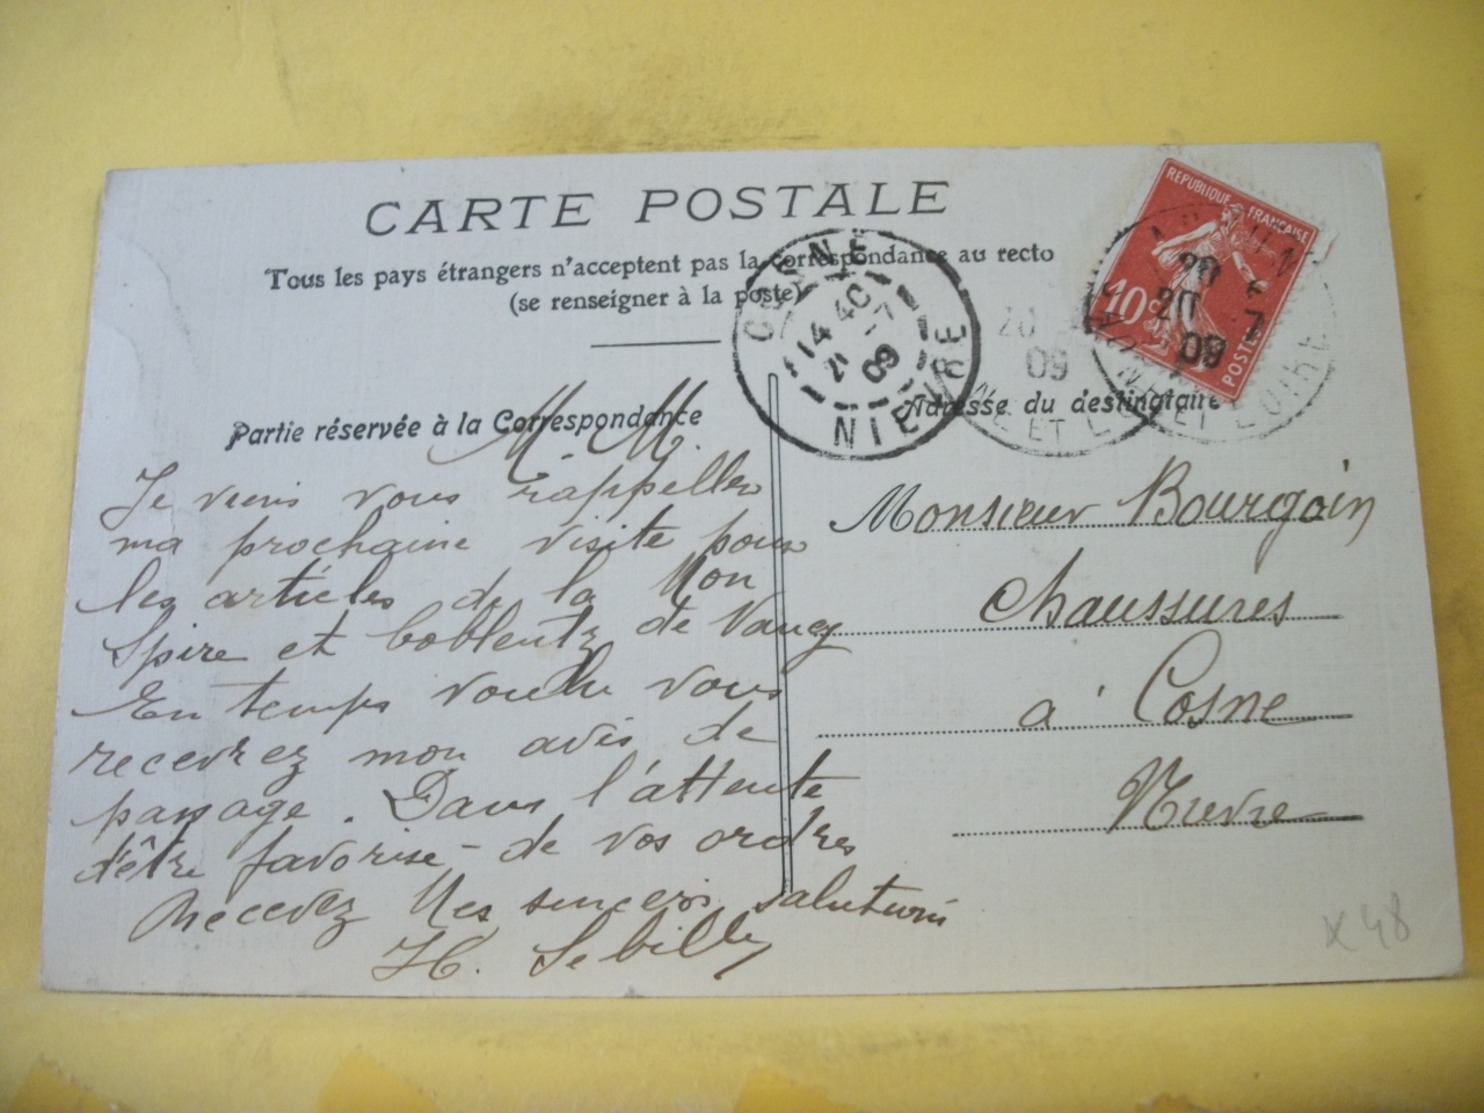 CARTE POSTALE
Tous les pays étrangers n'acceptent pas la correspondance au recto
(se renseigner à la poste)
REPUBLIQUE FRANÇAISE
10c
POSTES
COSNE
14 40
21 -7
09
NIEVRE
20
09
NE ET L
20 7
20
09
NE ET LOIRE
Partie réservée à la Correspondance
Adresse du destinataire
M. M.
Je viens vous rappeller
ma prochaine visite pour
les articles de la Mon
Spire et Coblentz de Nancy
En temps voulu vous
recevrez mon avis de
passage. Dans l'attente
d'être favorisé de vos ordres
Recevez Mes sincères salutations
H. Sebilly
Monsieur Bourgoin
Chaussures
à Cosne
Nievre
x 48